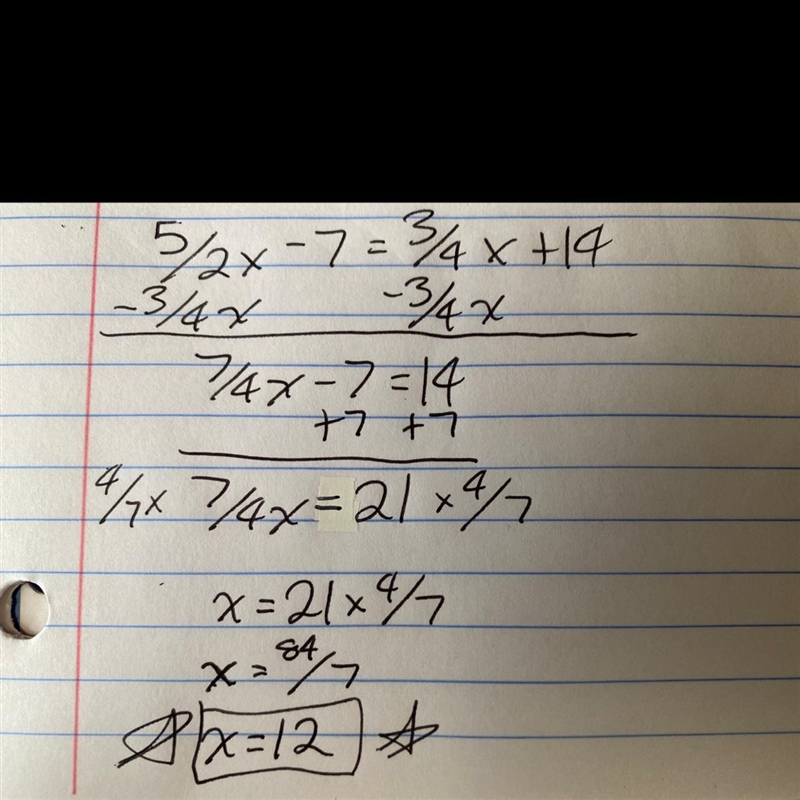 5/2x - 7 = 3/4x + 14
-3/4x -3/4x
7/4x - 7 = 14
+7 +7
4/7 x 7/4x = 21 x 4/7
x = 21 x 4/7
x = 84/7
x = 12